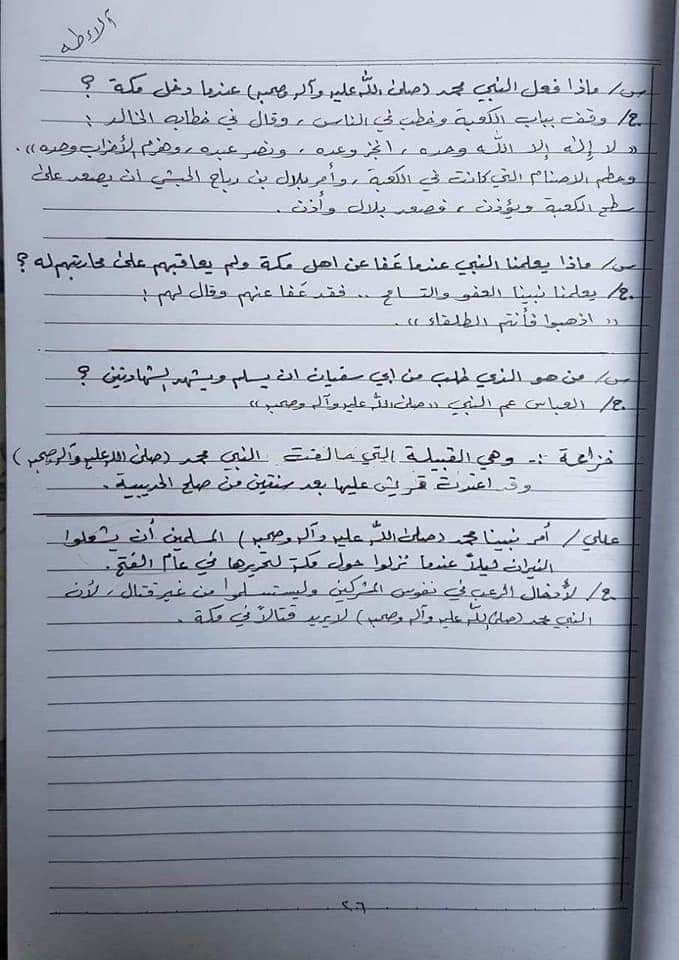 س/ ماذا فعل النبي محمد (صلى الله عليه وآله وصحبه) عندما دخل مكة ؟
ج/ وقف بباب الكعبة وخطب في الناس ، وقال في خطابه الخالد :
«لا إله إلا الله وحده ، انجز وعده ، ونصر عبده ، وهزم الأحزاب وحده» .
وحطم الاصنام التي كانت في الكعبة ، وأمر بلال بن رباح الحبشي ان يصعد على
سطح الكعبة ويؤذن ، فصعد بلال وأذن .
س/ ماذا يعلمنا النبي عندما عَفا عن اهل مكة ولم يعاقبهم على محاربتهم له ؟
ج/ يعلمنا نبينا العفو والتسامح .. فقد عَفا عنهم وقال لهم :
«اذهبوا فأنتم الطلقاء» .
س/ من هو الذي طلب من ابي سفيان ان يسلم ويشهد الشهادتين ؟
ج/ العباس عم النبي «صلى الله عليه وآله وصحبه»
خزاعة :- وهي القبيلة التي حالفت النبي محمد (صلى الله عليه وآله وصحبه)
وقد اعتدت قريش عليها بعد سنتين من صلح الحديبية .
عللي/ أمر نبينا محمد (صلى الله عليه وآله وصحبه) المسلمين أن يشعلوا
النيران ليلاً عندما نزلوا حول مكة لتحريرها في عام الفتح .
ج/ لأدخال الرعب في نفوس المشركين وليستسلموا من غير قتال ، لأن
النبي محمد (صلى الله عليه وآله وصحبه) لا يريد قتالاً في مكة .
٢٦